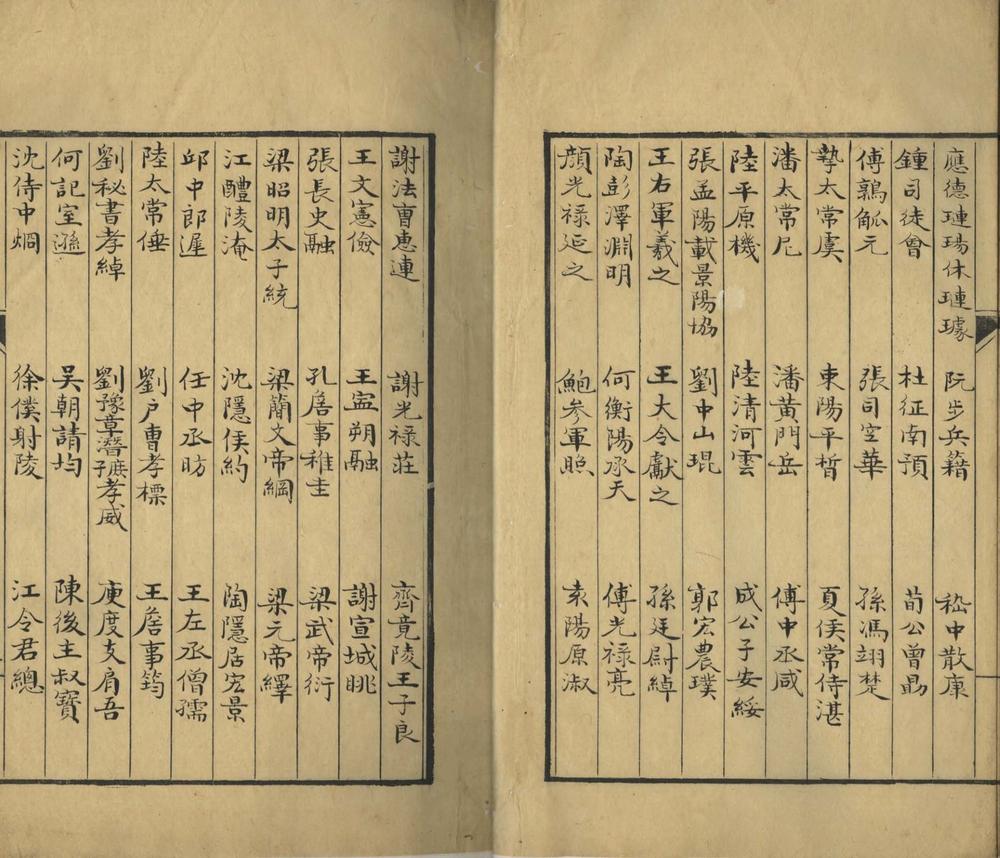 應德璉瑒休璉璩 阮步兵籍 嵇中散康
鍾司徒會 杜征南預 荀公曾勗
傅鶉觚元 張司空華 孫馮翊楚
摯太常虞 東陽平晳 夏侯常侍湛
潘太常尼 潘黃門岳 傅中丞咸
陸平原機 陸清河雲 成公子安綏
張孟陽載景陽協 劉中山琨 郭宏農璞
王右軍羲之 王大令獻之 孫廷尉綽
陶彭澤淵明 何衡陽承天 傅光祿亮
顏光祿延之 鮑參軍照 袁陽原淑
謝法曹惠連 謝光祿莊 齊竟陵王子良
王文憲儉 王寍朔融 謝宣城眺
張長史融 孔詹事稚圭 梁武帝衍
梁昭明太子統 梁簡文帝綱 梁元帝繹
江醴陵淹 沈隱侯約 陶隱居宏景
邱中郎遲 任中丞昉 王左丞僧孺
陸太常倕 劉戶曹孝標 王詹事筠
劉秘書孝綽 劉豫章潛 孝威 庾度支肩吾
何記室遜 吳朝請均 陳後主叔寶
沈侍中烱 徐僕射陵 江令君總